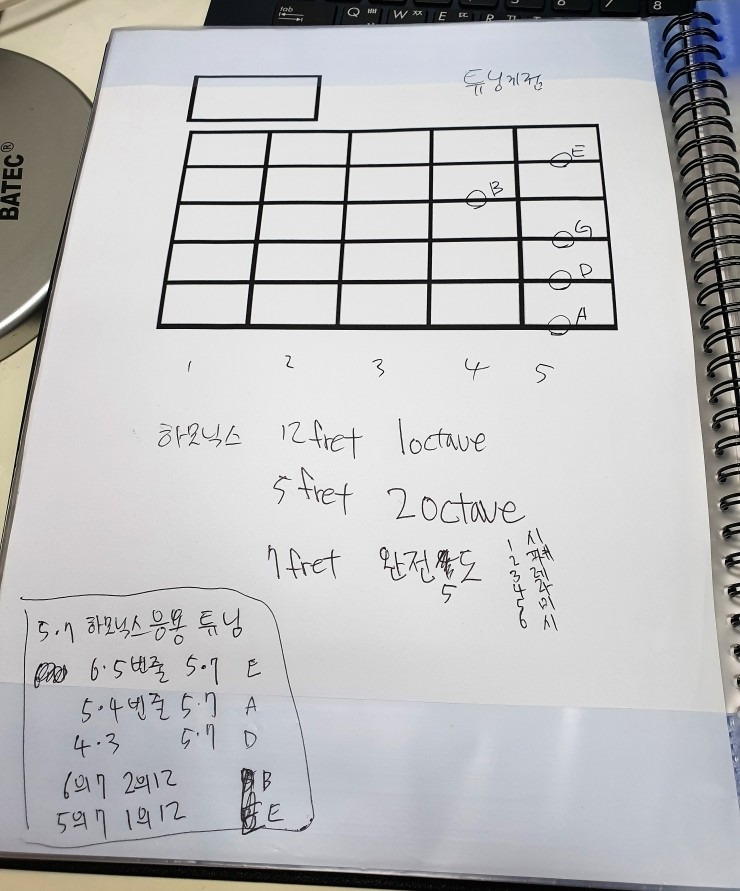 tab Q ㅃ W ㅉ E ㄸ R ㄲ 6 7 8
BATEC®
튜닝지점
E
B
G
D
A
1 2 3 4 5
하모닉스 12fret 1octave
5fret 2octave
7fret 완전 도
5
1 시
2
3 레
4 라
5 미
6 시
5.7 하모닉스 응용 튜닝
6.5번줄 5.7 E
5.4번줄 5.7 A
4.3 5.7 D
6의7 2의12 B
5의7 1의12 E